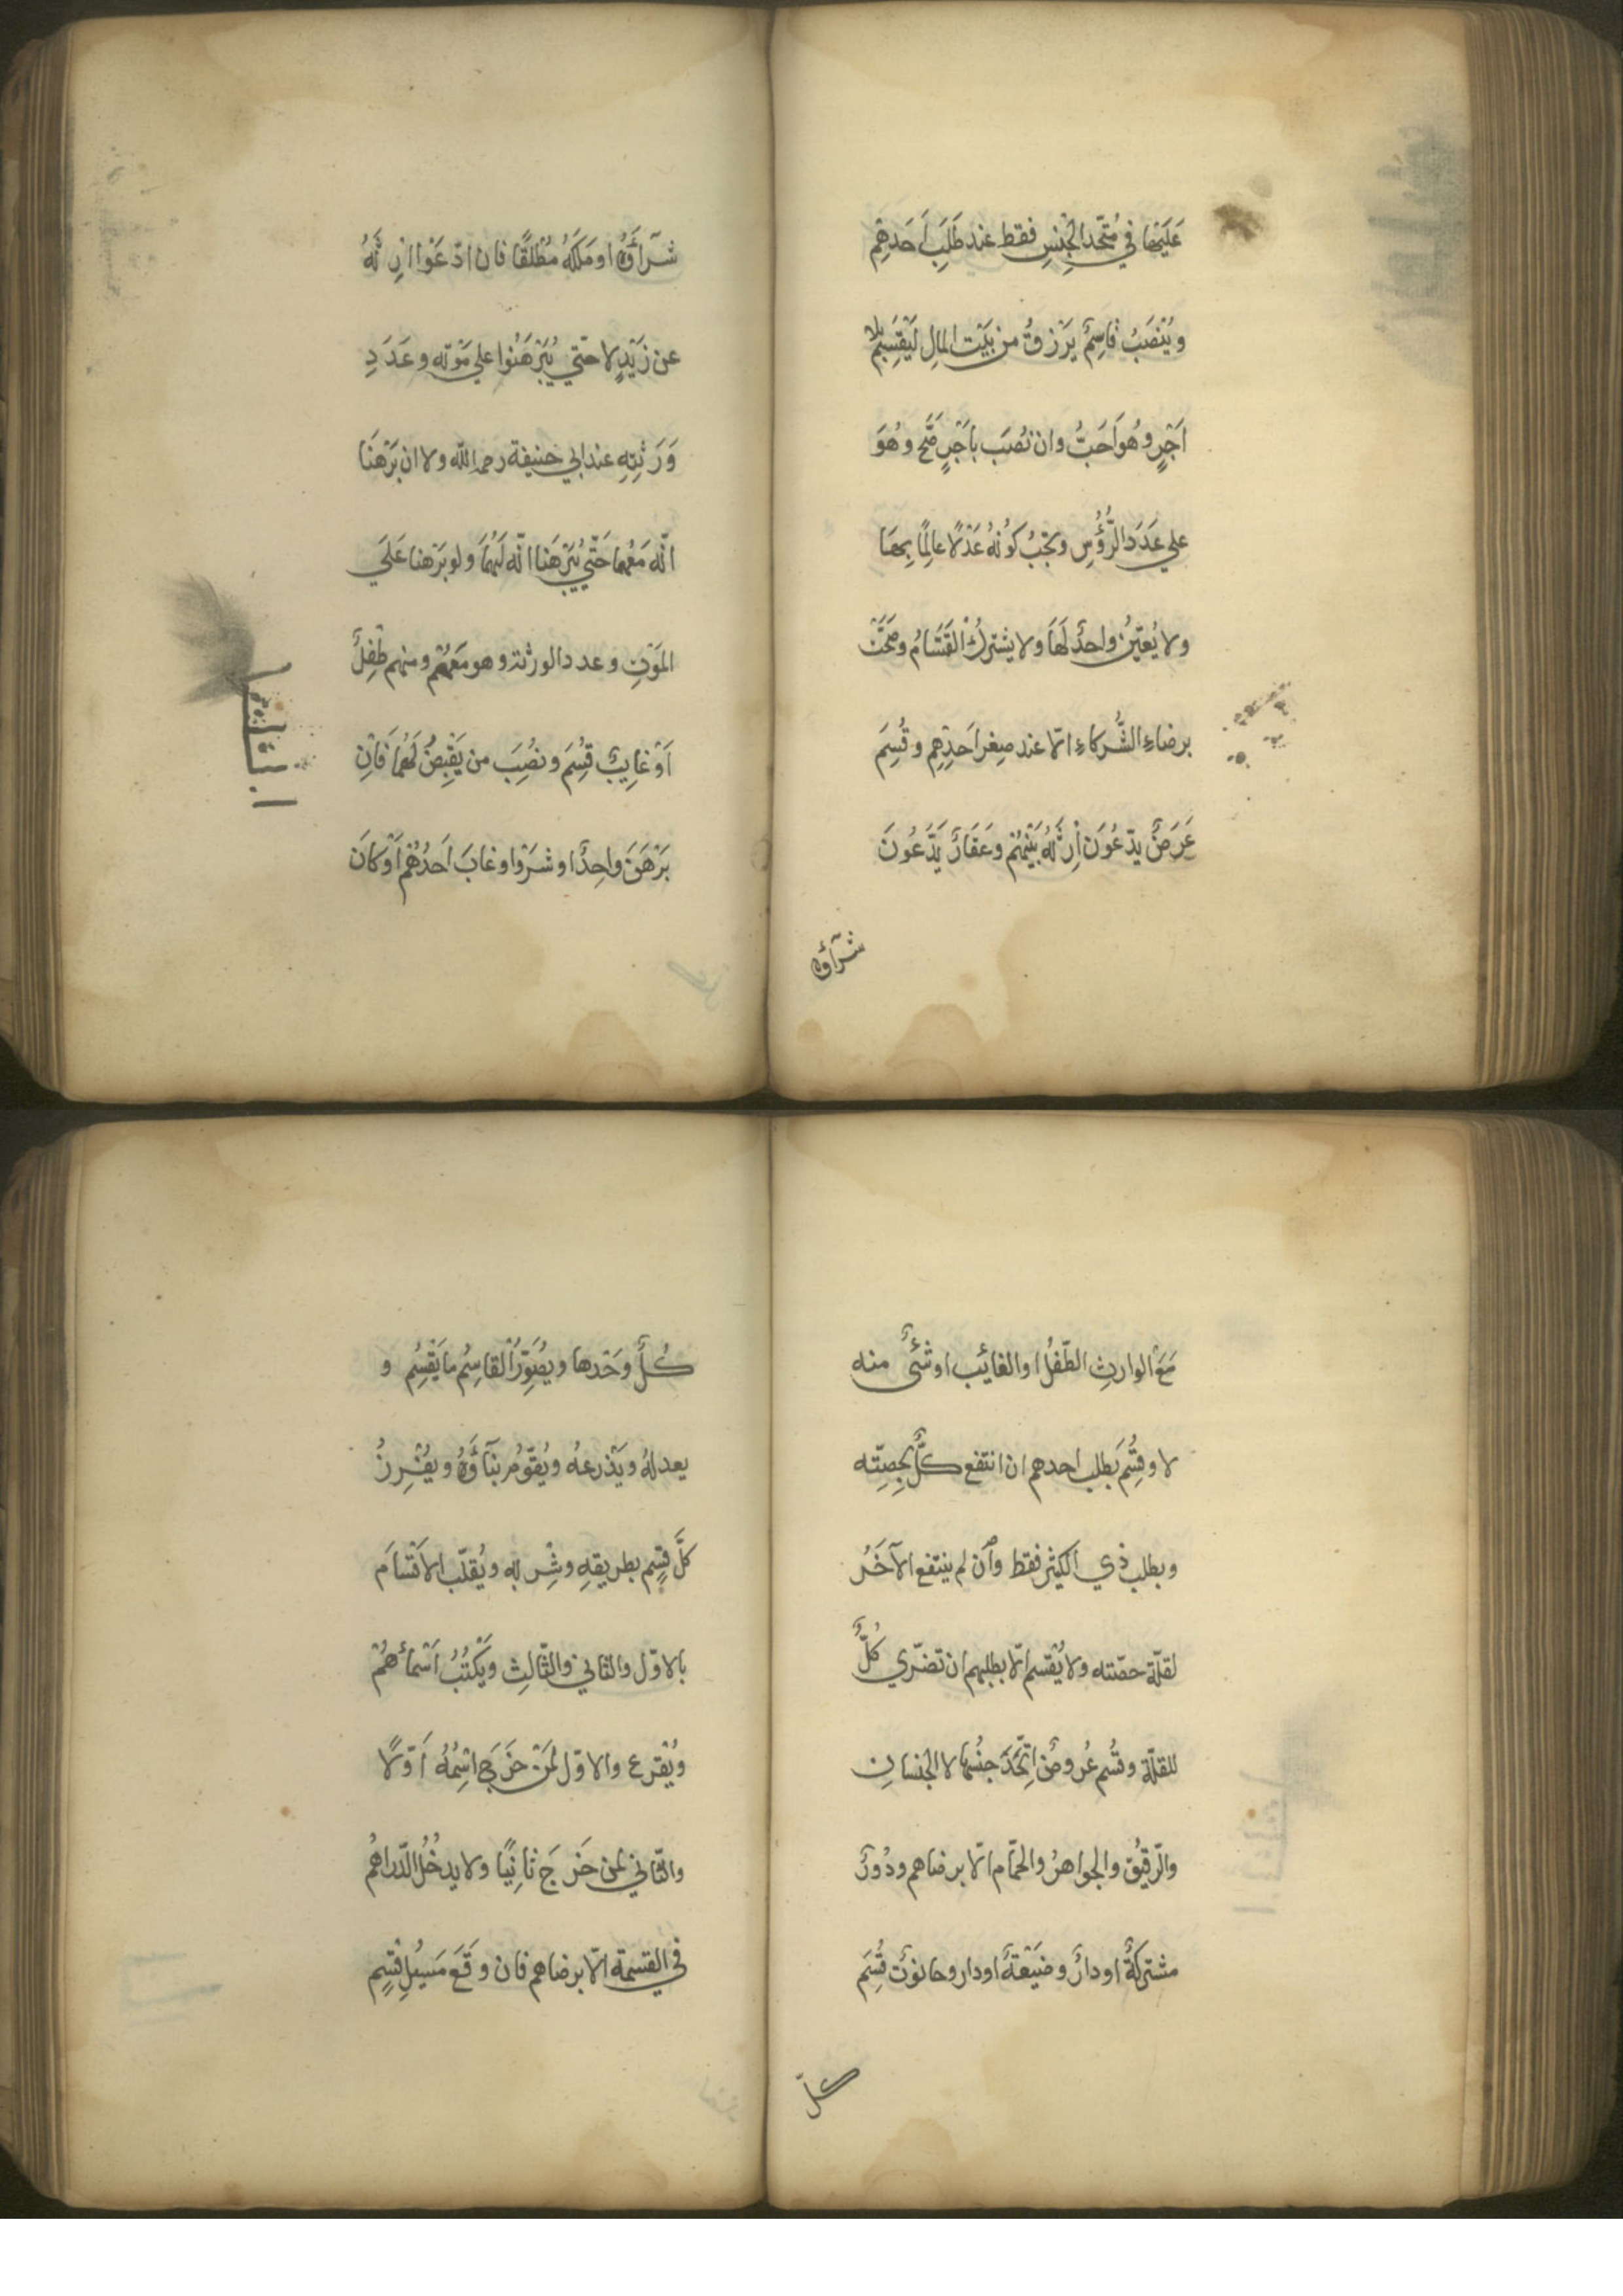 عَلَيْهَا في مُتّحد الجِنسِ فقط عند طَلَبِ اَحَدِهِم
ويُنْصَبُ قاسِمٌ يَرْزقُ من بَيْت المالِ لَيَقْسِمَ بلا
اَجْرٍ وهُواَحَبُّ وان نُصِبَ باَجْرٍ صَّحَ وهُوَ
علي عَدَدَ الرُّؤُسِ ويَجْبُ كَوْنهُ عَدْلًا عالِمًا بِهَا
ولا يُعيّنُ واحِدٌ لَهَا ولا يشترِكُ اْلقَسَّامُ وصَحَّتْ
برضاءِ الشُّركاءِ الّا عند صِغر اَحَدِهِم وقُسِمَ
عَرَضٌ يدّعُوْنَ اِرثَهُ بَيْنِهُم وعَقَارٌ يَدَّعُونَ
شرآؤهُ
شرآؤَهُ او مَلَكَهُ مُطْلَقًا فان ادّعَوْا ارِثَهُ
عن زَيْدٍ لا حتّي يُبَرْهَنُوا علي مَوْته وعَدَدِ
وَرَثَتِهِ عند ابي حنيفة رحمه الله ولا ان بَرْهَنَا
انّه مَعْهما حَتّي يُبَرْهَنا انّه لَهُمَا ولو بَرْهنا عَلَي
المَوْتِ وعدد الورثة وهو مَعَهُمْ ومنهم طْفِلٌ
اَوْ غايِبٌ قُسِمَ ونُصِبَ من يَقْبِضُ لَهُمَا فَاِنِ
بَرْهَنَ واحِدٌ او شَرَوْا وغابَ اَحَدُهُمْ اَوْ كانَ
مَعَ الوارثِ الطّفلُ او الغائِب او شئٌ منه
لا وقُسِّمَ بَطلبِ احدهم ان انتفع كلٌّ بِحِصِّته
وبطلب ذي الكثير فقط وان لم ينتفع الآخَرُ
لقلّة حصّته ولا يُقْسم الّا بطلبهم ان تضرّي كُلٌّ
للقلّة وقُسِم عُروضٌ اِتَّحَدَ جنسُها لا الجنسانِ
والرّقيْق والجواهرُ والحمّام الّا برضاهم ودُورٌ
مشتركةٌ او دارٌ وضَيْعَةٌ او دار وحانوْتٌ قُسِّمَ
كلّ
كُلٌّ وحَدْها ويصُوِّرُ اْلقاسِمُ ما يَقْسِمُ و
يعدلهُ ويَذْرعهُ ويُقوّمُ بنآؤَهُ ويُفْرِزُ
كلَّ قِسْمٍ بطريقهِ وشِرْبِه ويُقلّب الاَقْسَامَ
بالاوّل والثاني والثّالثِ ويَكْتُبُ اَسْمآءَهُمْ
ويُقْرع والاوّل لمَنْ خَرَجَ اسْمُهُ اَوّلًا
والثّاني لمن خَرَجَ ثانِيًا ولا يدخُلُ الدّراهُم
في القسمة الّا برضاهم فان وقَعَ مَسِيْلِ قِسْمٍ